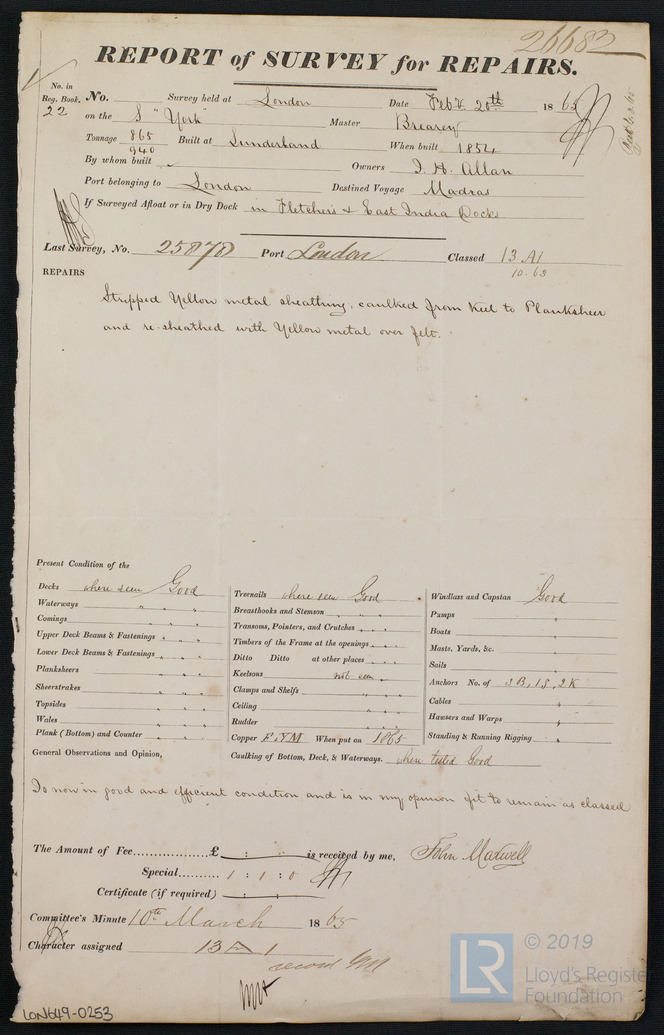 26682
REPORT of SURVEY for REPAIRS.
No. in Reg. Book. 22 No. Survey held at London Date Feby 20th 1865
on the S "York" Master Brearey
Tonnage 865 940 Built at Sunderland When built 1854
By whom built Owners J. H. Allan
Port belonging to London Destined Voyage Madras
If Surveyed Afloat or in Dry Dock in Fletchers & East India Dock
Last Survey, No. 25878 Port London Classed 13 A1
10.63
REPAIRS
Stripped Yellow metal sheathing, caulked from Keel to Planksheer
and re-sheathed with Yellow metal over felt.
Present Condition of the
Decks where seen Good
Waterways " " "
Comings " " "
Upper Deck Beams & Fastenings " " "
Lower Deck Beams & Fastenings " " "
Planksheers " " "
Sheerstrakes " " "
Topsides " " "
Wales " " "
Plank (Bottom) and Counter " " "
General Observations and Opinion,
Treenails where seen Good
Breasthooks and Stemson " " "
Transoms, Pointers, and Crutches " " "
Timbers of the Frame at the openings " " "
Ditto Ditto at other places " " "
Keelsons not seen
Clamps and Shelfs " "
Ceiling " "
Rudder " " "
Copper F.YM When put on 1865
Caulking of Bottom, Deck, & Waterways. when tested Good
Windlass and Capstan Good
Pumps "
Boats "
Masts, Yards, &c. "
Sails "
Anchors No. of 3B, 1S, 2K
Cables "
Hawsers and Warps "
Standing & Running Rigging "
Is now in good and efficient condition and is in my opinion fit to remain as classed
The Amount of Fee................£ : : is received by me, John Maxwell
Special.......... 1 : 1 : 0
Certificate (if required) : :
Committee's Minute 10th March 1865
Character assigned 13 A 1
LON649-0253
LR
© 2019
Lloyd's Register
Foundation